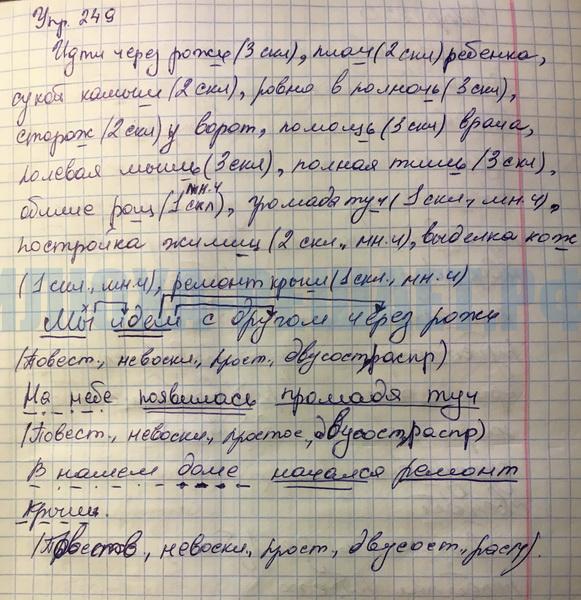 Упр. 249
Идти через рожь (3 скл), плач (2 скл) ребенка,
сухой камыш (2 скл), ровно в полночь (3 скл),
сторож (2 скл) у ворот, помощь (3 скл) врача,
полевая мышь (3 скл), полная тишь (3 скл),
обилие рощ (1 скл мн.ч), громада туч (1 скл., мн.ч),
постройка жилищ (2 скл., мн.ч), выделка кож
(1 скл., мн.ч), ремонт крыш (1 скл., мн.ч)
Мы идем с другом через рожь
(Повест., невоскл., прост., двусост, распр)
На небе появилась громада туч
(Повест., невоскл., простое, двусост, распр)
В нашем доме начался ремонт
крыш.
(Повеств., невоскл., прост., двусост., распр).